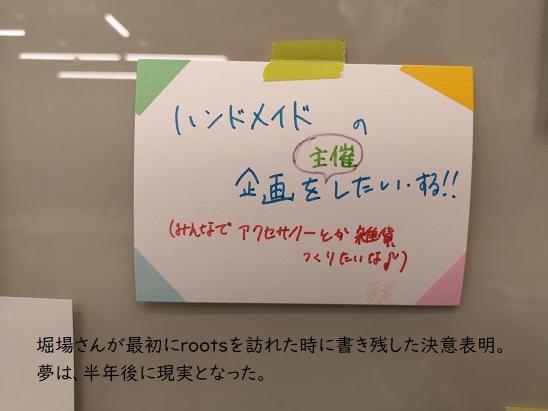 ハンドメイド の
主催
企画をしたい・する!!
(みんなで アクセサリーとか 雑貨
つくりたいな♪)
堀場さんが最初にrootsを訪れた時に書き残した決意表明。
夢は、半年後に現実となった。